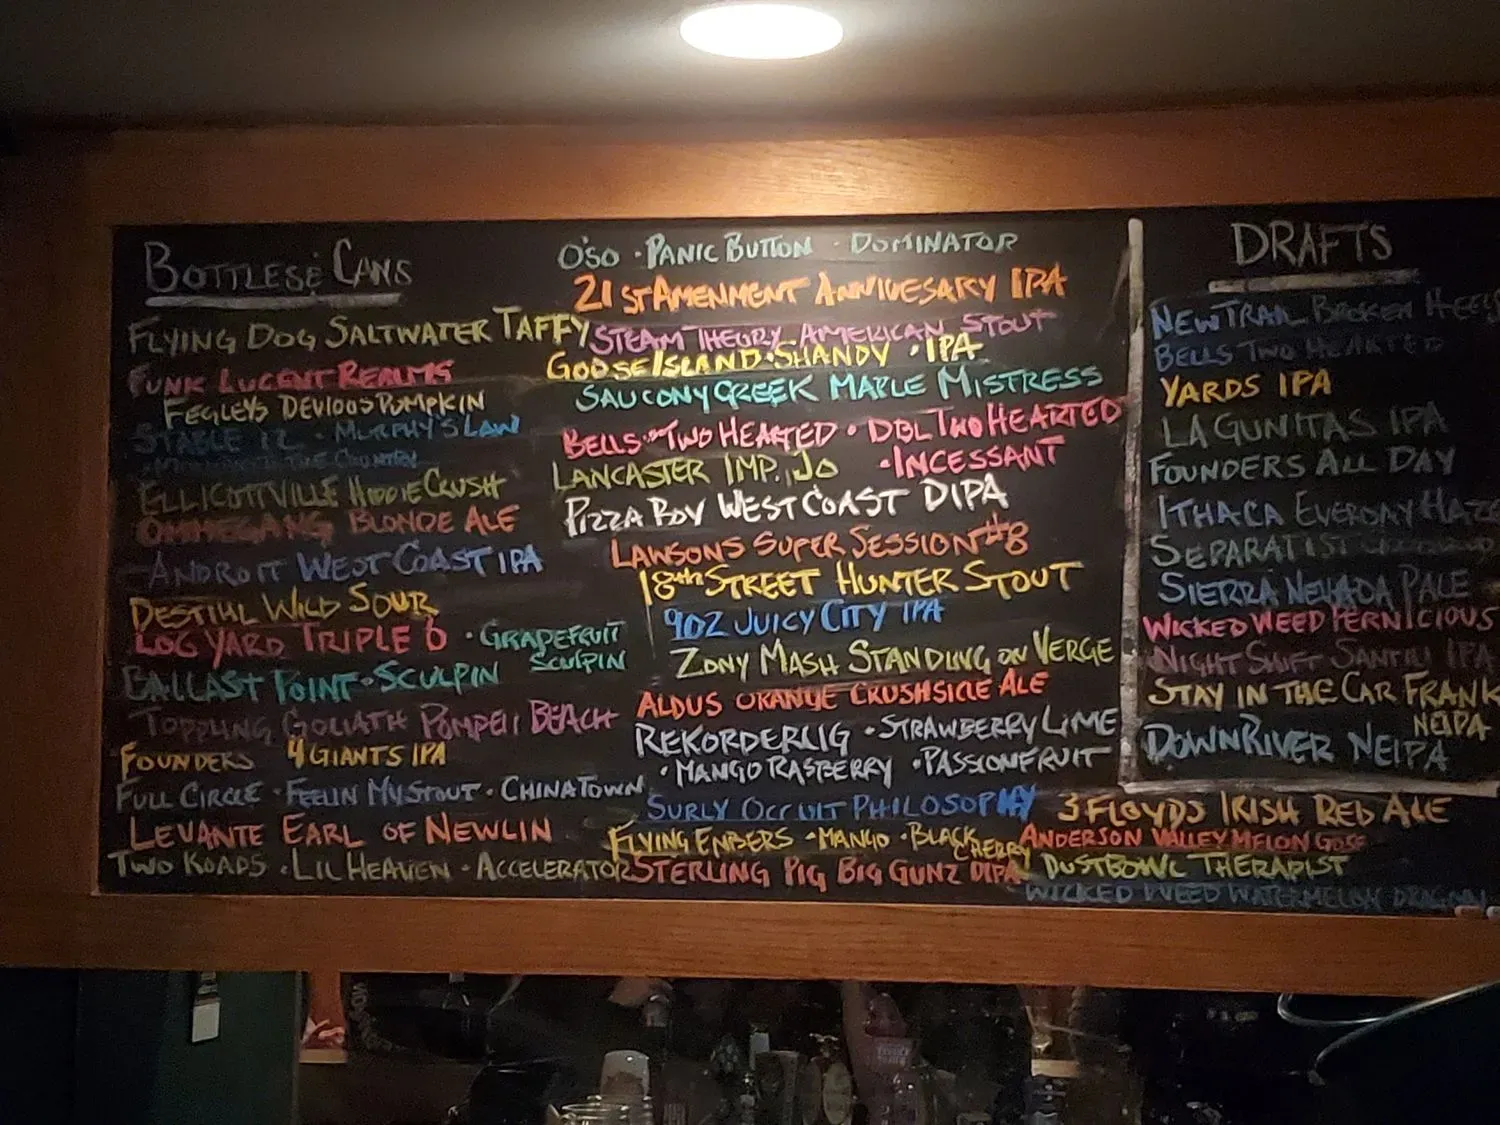 BOTTLES & CANS
FLYING DOG SALTWATER TAFFY
FUNK LUCENT REALMS
FEGLEYS DEVIOUS PUMPKIN
STABLE 12 · MURPHY'S LAW
THE COUNTRY
ELLICOTTVILLE HIDDIE CRUSH
OMMEGANG BLONDE ALE
ANDROIT WEST COAST IPA
DESTIHL WILD SOUR
LOG YARD TRIPLE D
BALLAST POINT · SCULPIN · GRAPEFRUIT SCULPIN
TOPPLING GOLIATH POMPEII BEACH
FOUNDERS 4 GIANTS IPA
FULL CIRCLE · FEELIN MY STOUT · CHINATOWN
LEVANTE EARL OF NEWLIN
TWO ROADS · LIL HEAVEN · ACCELERATOR
O'SO · PANIC BUTTON · DOMINATOR
21ST AMENMENT ANNIVESARY IPA
STEAM THEORY AMERICAN STOUT
GOOSE ISLAND · SHANDY · IPA
SAUCONY CREEK MAPLE MISTRESS
BELLS · TWO HEARTED · DBL TWO HEARTED
LANCASTER IMP. JO · INCESSANT
PIZZA BOY WEST COAST DIPA
LAWSONS SUPER SESSION #8
18TH STREET HUNTER STOUT
902 JUICY CITY IPA
ZONY MASH STANDING ON VERGE
ALDUS ORANGE CRUSHSICLE ALE
REKORDERLIG · STRAWBERRY LIME
· MANGO RASPBERRY · PASSIONFRUIT
SURLY OCCULT PHILOSOPHY
FLYING EMBERS · MANGO · BLACK CHERRY
STERLING PIG BIG GUNZ DIPA
DRAFTS
NEW TRAIL BROKEN HEELS
BELLS TWO HEARTED
YARDS IPA
LAGUNITAS IPA
FOUNDERS ALL DAY
ITHACA EVERDAY HAZE
SEPARATIST
SIERRA NEVADA PALE
WICKED WEED PERNICIOUS
NIGHT SHIFT SANTILLI IPA
STAY IN THE CAR FRANK
NEIPA
DOWNRIVER NEIPA
3 FLOYDS IRISH RED ALE
ANDERSON VALLEY MELON GOSE
DUSTBOWL THERAPIST
WICKED WEED WATERMELON DRAGON